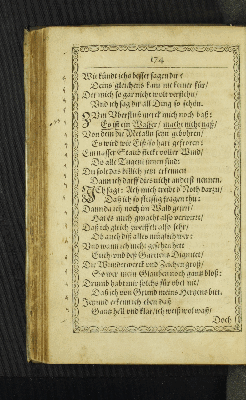 174
Wie kündt ichs besser sagen dir?
Deins gleichens kam nie keiner für/
Der mich so gar nicht wolt verstehn/
Und ich sag dir all Ding so schön.
Zum Uberfluß merck mich noch baß:
Es ist ein Wasser/ macht nicht naß/
Von dem die Metalln seyn gebohren/
Es wird wie Eiß so hart gefroren:
Ein nasser Staub steckt voller Wind/
Da alle Tugent innen sind:
Du solt das billich jetzt erkennen
Dann ich darffs dir nicht anderst nennen.
Ich sagt: Ach mich treibt d'Noth darzu/
Daß ich so fleissig fragen thu:
Dann da ich noch im Wald gesyn/
Hat es mich gmacht also verwirrt/
Daß ich gleich zweiffelt also sehr/
Ob auch diß alles müglich wer:
Und wann ich nicht gesehen hett
Euch und deß Gartens Dignitet/
Die Wunderwerck und Zeichen groß/
So wer mein Glauben noch gantz bloß:
Drumb habt mir solchs für übel nit/
Daß ich von Grund meins Hertzens bitt.
Jetzund erkenn ich eben daß
Gantz hell und klar/ ich weiß wol waß/
Doch